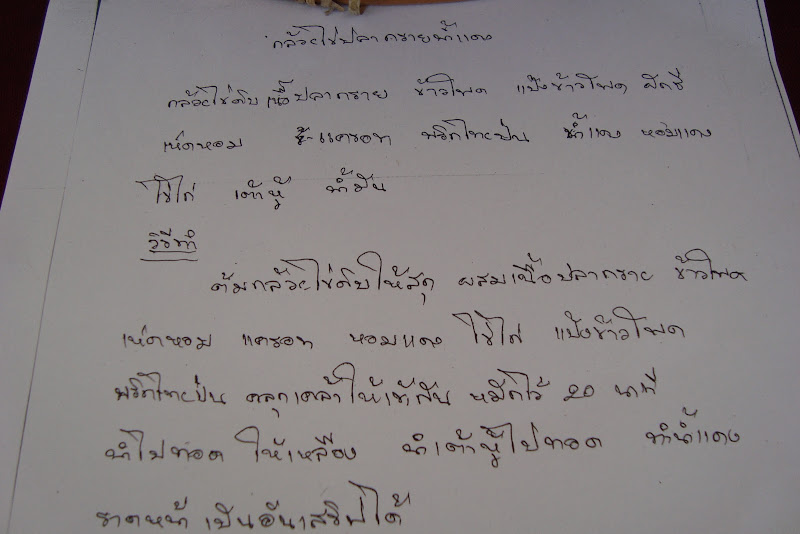 กล้วยไข่ปลากรายน้ำแดง
กล้วยไข่ดิบ เนื้อปลากราย ข้าวโพด แป้งข้าวโพด ผักชี
เห็ดหอม แครอท พริกไทยป่น น้ำแดง หอมแดง
ไข่ไก่ เต้าหู้ น้ำมัน
วิธีทำ
ต้มกล้วยไข่ดิบให้สุก ผสมเนื้อปลากราย ข้าวโพด
เห็ดหอม แครอท หอมแดง ไข่ไก่ แป้งข้าวโพด
พริกไทยป่น คลุกเคล้าให้เข้ากัน หมักไว้ 20 นาที
นำไปทอด ให้เหลือง นำเต้าหู้ไปทอด ทำน้ำแดง
ราดหน้า เป็นอันเสริฟได้